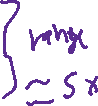 range
≃ 5x